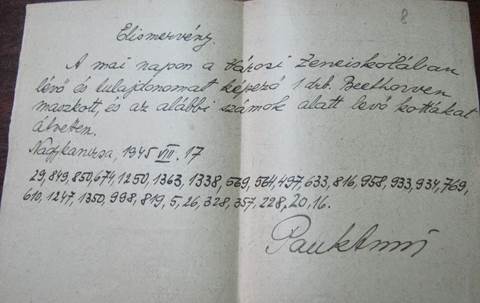 8
Elismervény.
A mai napon a Városi Zeneiskolában
lévő és tulajdonomat képező 1 drb. Beethoven
maszkot, és az alábbi számok alatt levő kottákat
átvettem.
Nagykanizsa, 1945 VII. 17
29, 849, 850, 674, 1250, 1363, 1338, 569, 564, 497, 633, 816, 958, 933, 934, 769,
610, 1247, 1350, 998, 819, 5, 26, 328, 357, 228, 20, 16.